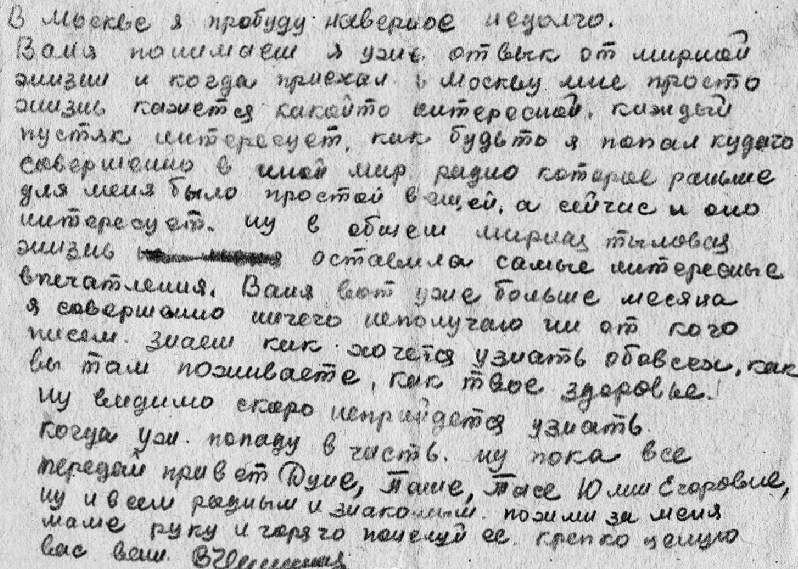 В Москве я пробуду наверное недолго.
Ваня понимаеш я уже отвык от мирной
жизни и когда приехал в Москву мне просто
жизнь кажется какойто интересной. каждый
пустяк интересует, как будьто я попал кудато
совершенно в иной мир. радио которое раньше
для меня было простой вещей, а сейчас и оно
интересует. ну в общем мирная тыловая
жизнь оставила самые интересные
впечатления. Ваня вот уже больше месяца
я совершенно ничего неполучаю ни от кого
писем. знаеш как хочется узнать обовсех, как
вы там поживаете, как твое здоровье.
ну видимо скоро неприйдется узнать
когда уж. попаду в часть. ну пока все
передай привет Дуне, Паше, Тасе Юлии Егоровне,
ну и всем родным и знакомым. пожми за меня
маме руку и горячо поцелуй ее. крепко целую
вас ваш